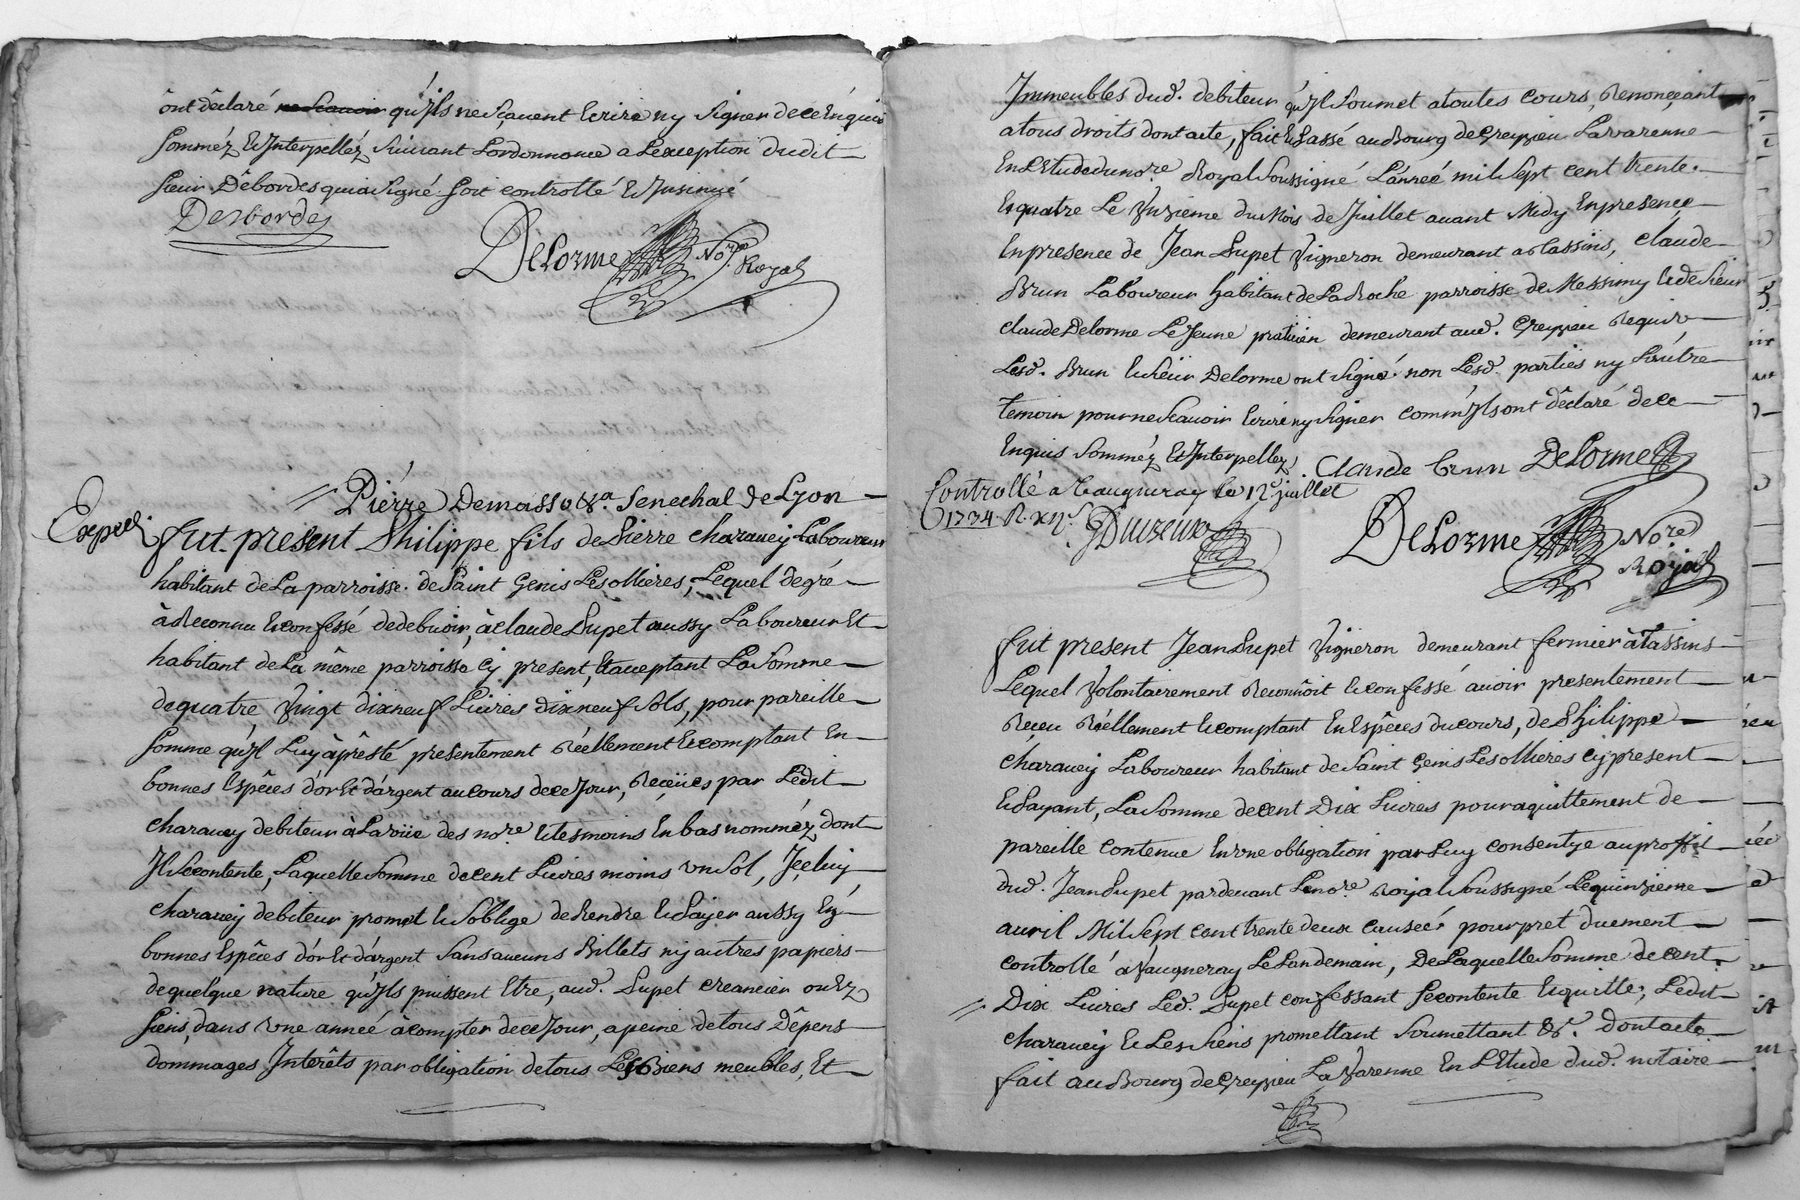 ônt dêclaré qu'Jls ne sçavent Ecrire ny signer de ce Enquis
sommêz Et Interpellêz suivant Lordonnance a Lexception dudit
sieur Dêbordes qui a signé. soit controllé Et Jnsinué
Desbordes
DeLorme Nore
Royal
Pierre Demasso &a. Senechal de Lyon
Exped.
fut present Philippe fils de Pierre charavey Laboureur
habitant de La parroisse de saint Genis Les ollieres, Lequel de gré
à Reconnu Et confessé de debvoir, à claude Dupet aussy Laboureur Et
habitant de La même parroisse cy present, Et acceptant La somme
de quatre vingt dix neuf Livres dix neuf sols, pour pareille
somme qu'Jl Luy à prêsté presentement Réellement Et comptant En
bonnes Espêces d'or Et d'argent au cours de ce Jour, Reçeües par Ledit
charavey debiteur à La vüe des nore. Et tesmoins En bas nommêz dont
Jl se contente, Laquelle somme de cent Livres moins un sol, Jceluy
charavey debiteur promet Et s'oblige de Rendre Et Payer aussy En
bonnes Espêces d'or Et d'argent sans aucuns Billets ny autres papiers
de quelque nature qu'Jls puissent Etre, aud. Dupet creancier ou Ez
siens, dans une année à compter de ce Jour, a peine de tous Dêpens
dommages Jnterêts par obligation de tous Les Biens meubles, Et
Jmmeubles dud. debiteur qu'Jl soumet a toutes cours, Renonçeant
a tous droits dont acte, fait Et Passé au Bourg de Greyzieu Lavarenne
En L'Etude du nore Royal soussigné L'année mil sept cent trente
Et quatre Le unzieme du Mois de Juillet avant Midy En presence
En presence de Jean Dupet vigneron demeurant a Tassins, claude
Brun Laboureur habitant de La Roche parroisse de Messimy Et de sieur
claude Delorme Le Jeune praticien demeurant aud. Greyzieu Requis
Lesd. Brun Et sieur Delorme ont signé non Lesd. parties ny L'autre
temoin pour ne sçavoir Ecrire ny signer comm'Jls ont dêclaré de ce
Enquis sommêz Et Jnterpellêz. Claude brun DeLorme
Controllé a Vaugneray le 12e juillet
1734 R. xns. Duvieux
DeLorme Nore
Royal
fut present Jean Dupet vigneron demeurant fermier à Tassins
Lequel volontairement Reconnoit Et confessé avoir presentement
Reçeu Réellement Et comptant En Espêces du cours, de Philippe
charavey Laboureur habitant de saint Genis Les ollieres cy present
Et Payant, La somme de cent Dix Livres pour aquittement de
pareille contenue En une obligation par Luy consentye au proffit
dud. Jean Dupet pardevant Le nore. Royal soussigné Le quinzieme
avril Mil sept cent trente deux causeé pour prêt duement
controllé a Vaugneray Le Landemain, De Laquelle somme de cent
Dix Livres Led. Dupet confessant se contente Et quitte, Ledit
charavey Et Les siens promettant soumettant &c. dont acte
fait au Bourg de Greyzieu La varenne En L'Etude dud. notaire